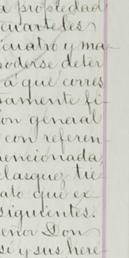 a propiedad
cuarteles
cuatro y ma
poderse deter
a que corres
samente fi
ion general
con referen
mencionada,
elasquez tie
ato que ex
siguientes.
eñor Don
si y sus here